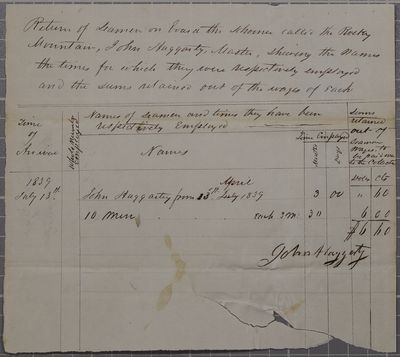 Return of Seamen on Board the Schooner called the Rocky
Mountain, John Haggarty, Master, shewing the Names
the times for which they were respectively employed
and the sums retained out of the wages of each
Time
of
Arrival
Names of Seamen and times they have been
respectively Employed
Names
Time Employed
Months
Days
Sums
retained
out of
Seamen
Wages to
be paid
to the Collector
Dols Cts
1839
July 13th
April
John Haggarty from 13th July 1839 3 00 " 60
10 Men each 3 m. 30 6 00
$6 60
John Haggerty